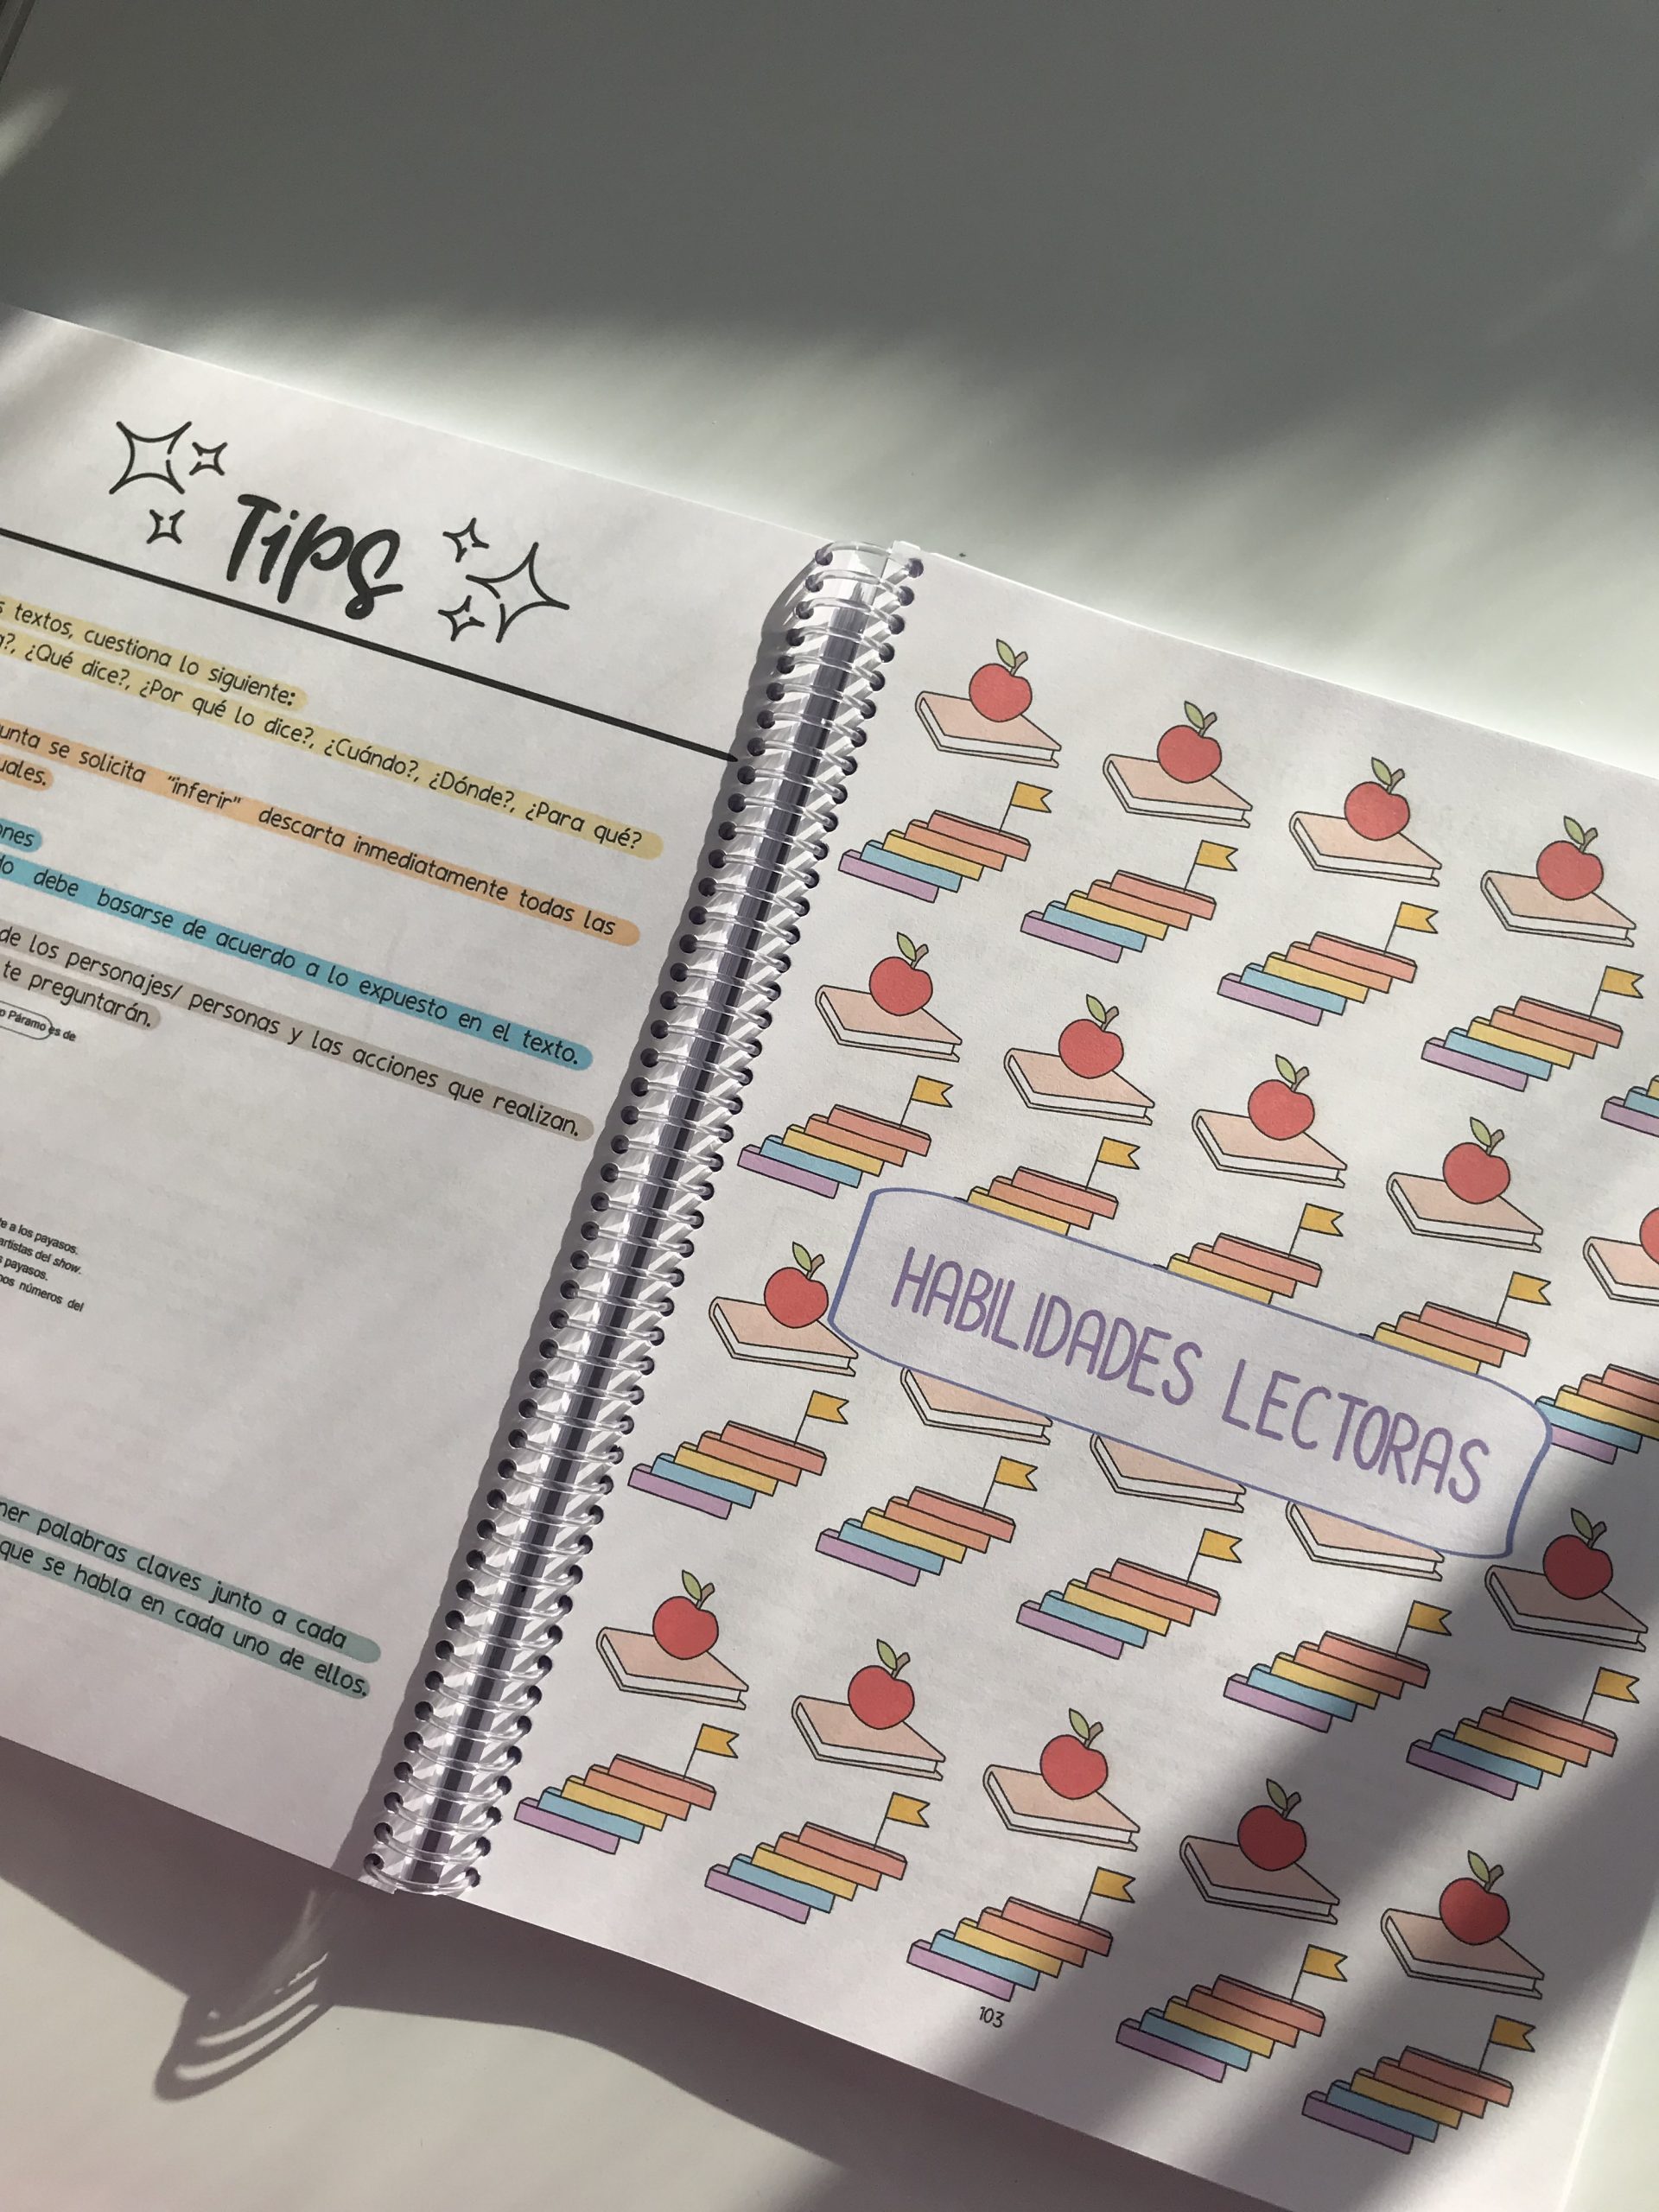 Tips
textos, cuestiona lo siguiente:
¿Qué dice?, ¿Por qué lo dice?, ¿Cuándo?, ¿Dónde?, ¿Para qué?
se solicita "inferir" descarta inmediatamente todas las
debe basarse de acuerdo a lo expuesto en el texto.
de los personajes/ personas y las acciones que realizan.
te preguntarán.
Páramo es de
a los payasos.
artistas del show.
payasos.
números del
palabras claves junto a cada
que se habla en cada uno de ellos.
HABILIDADES LECTORAS
103